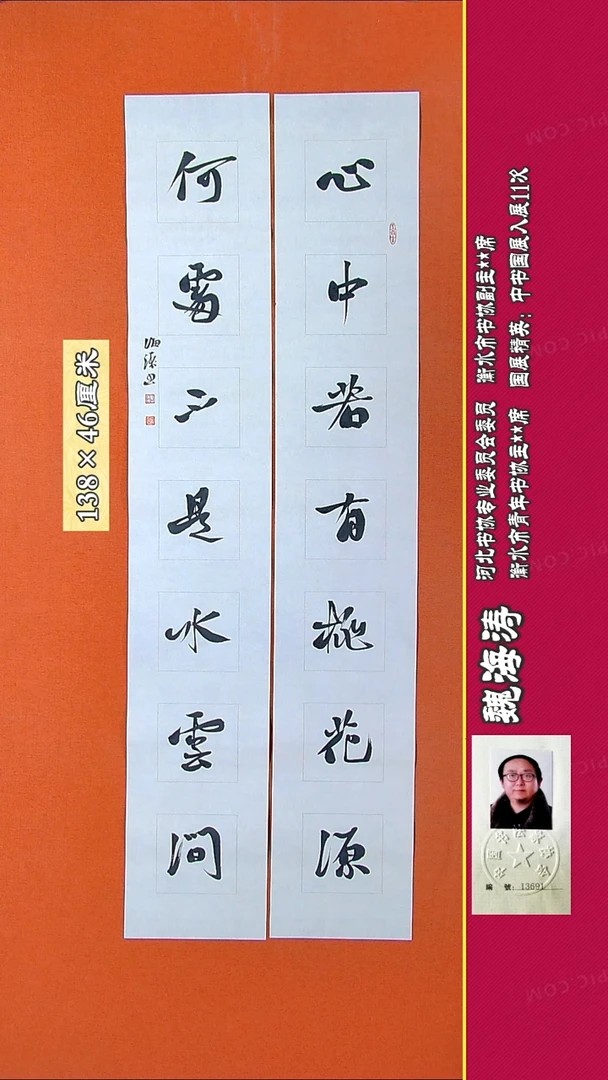 心中若有桃花源
何處不是水雲澗
138×46厘米
魏海涛
河北书协专业委员会委员 衡水市书协副主**席
衡水市青年书协主**席 国展精英：中书国展入展11次
編 號：13691